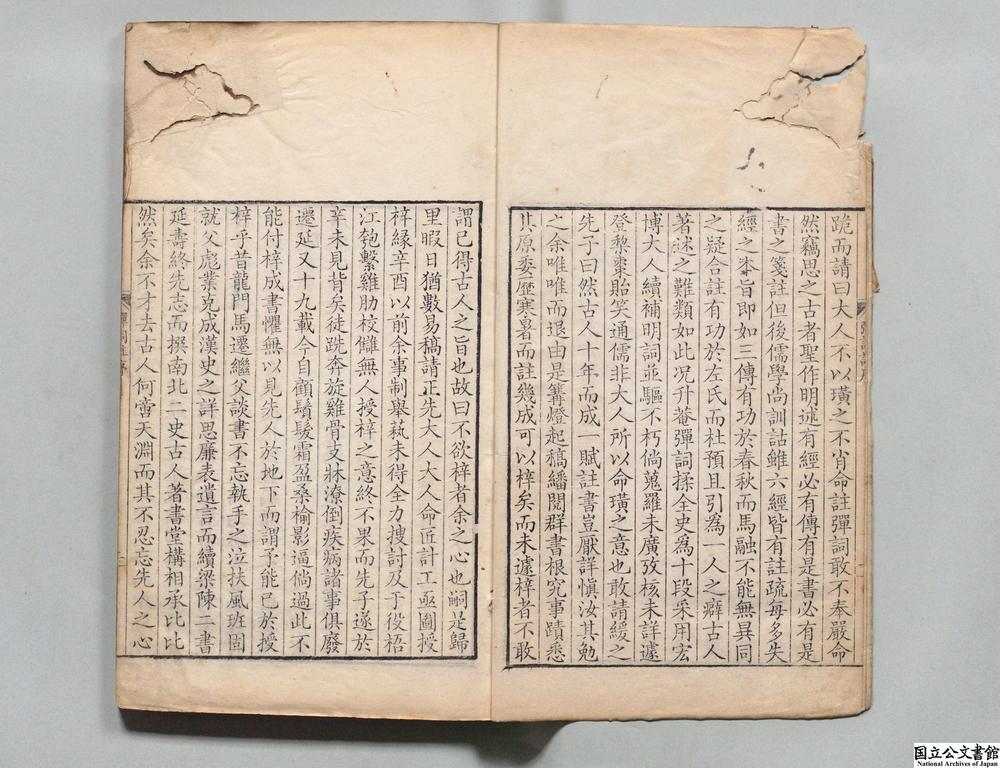 跪而請曰大人不以璜之不肖命註彈詞敢不奉嚴命
然竊思之古者聖作明述有經必有傳有是書必有是
書之箋註但後儒學尚訓詁雖六經皆有註疏每多失
經之本旨即如三傳有功於春秋而馬融不能無異同
之疑合註有功於左氏而杜預且引為一人之癖古人
著述之難類如此况升菴彈詞揉全史為十段采用宏
博大人續補明詞並驅不朽倘蒐羅未廣攷核未詳遽
登棃棗貽笑通儒非大人所以命璜之意也敢請緩之
先子曰然古人十年而成一賦註書豈厭詳愼汝其勉
之余唯唯而退由是篝燈起稿繙閱群書根究事蹟悉
其原委歷寒暑而註幾成可以梓矣而未遽梓者不敢
謂已得古人之旨也故曰不欲梓者余之心也嗣是歸
里暇日猶數易稿請正先大人大人命匠計工亟圖授
梓緣辛酉以前余事制舉蓺未得全力搜討及于役梧
江匏繫雞肋校讎無人授梓之意終不果而先子遂於
辛未見背矣徒跣奔旋雞骨支牀潦倒疾病諸事俱廢
遷延又十九載今自顧鬚髮霜盈桑榆影逼倘過此不
能付梓成書懼無以見先人於地下而謂予能已於授
梓乎昔龍門馬遷繼父談書不忘執手之泣扶風班固
就父彪業克成漢史之詳思廉表遺言而續梁陳二書
延壽終先志而撰南北二史古人著書堂構相承比比
然矣余不才去古人何啻天淵而其不忍忘先人之心
国立公文書館
National Archives of Japan